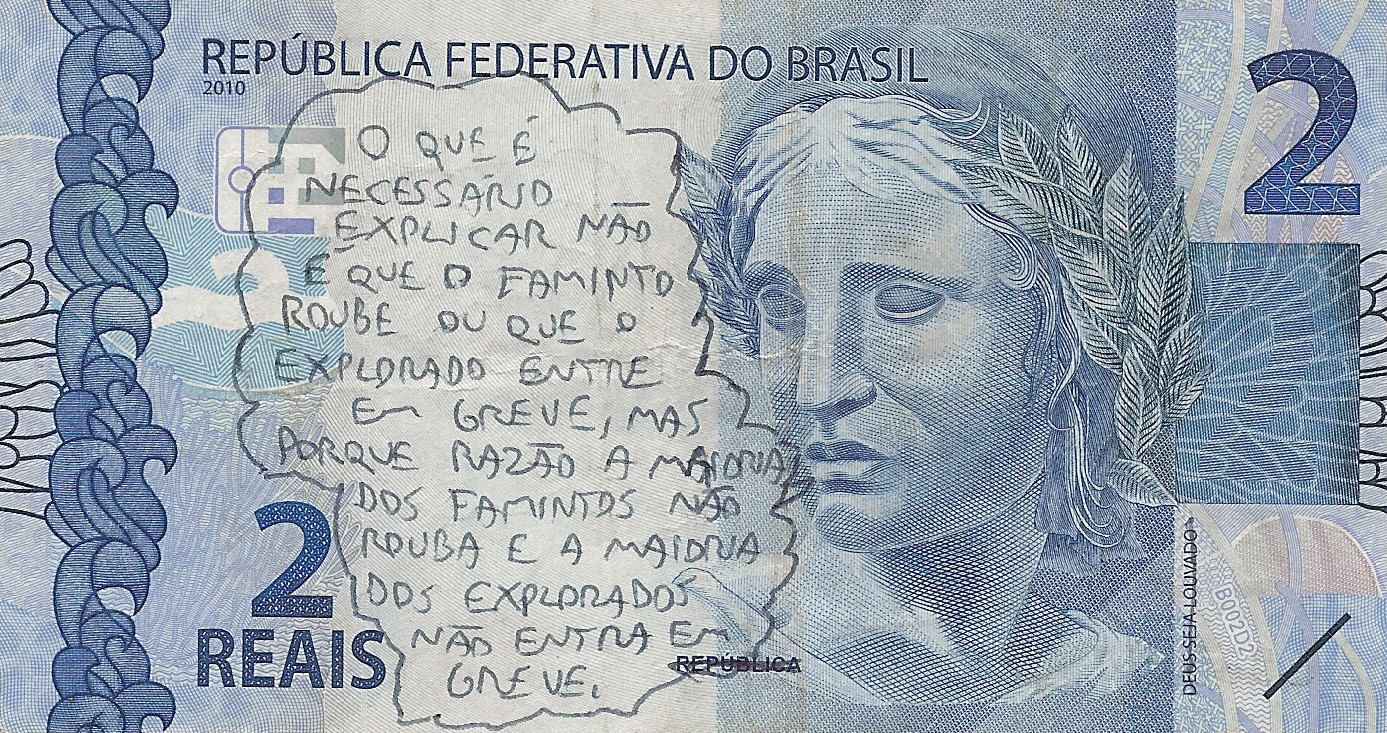 REPÚBLICA FEDERATIVA DO BRASIL
2010
2
O QUE É
NECESSÁRIO
EXPLICAR NÃO
É QUE O FAMINTO
ROUBE OU QUE O
EXPLORADO ENTRE
EM GREVE, MAS
PORQUE RAZÃO A MAIORIA
DOS FAMINTOS NÃO
ROUBA E A MAIORIA
DOS EXPLORADOS
NÃO ENTRA EM
GREVE.
2
2
REAIS
REPÚBLICA
DEUS SEJA LOUVADO